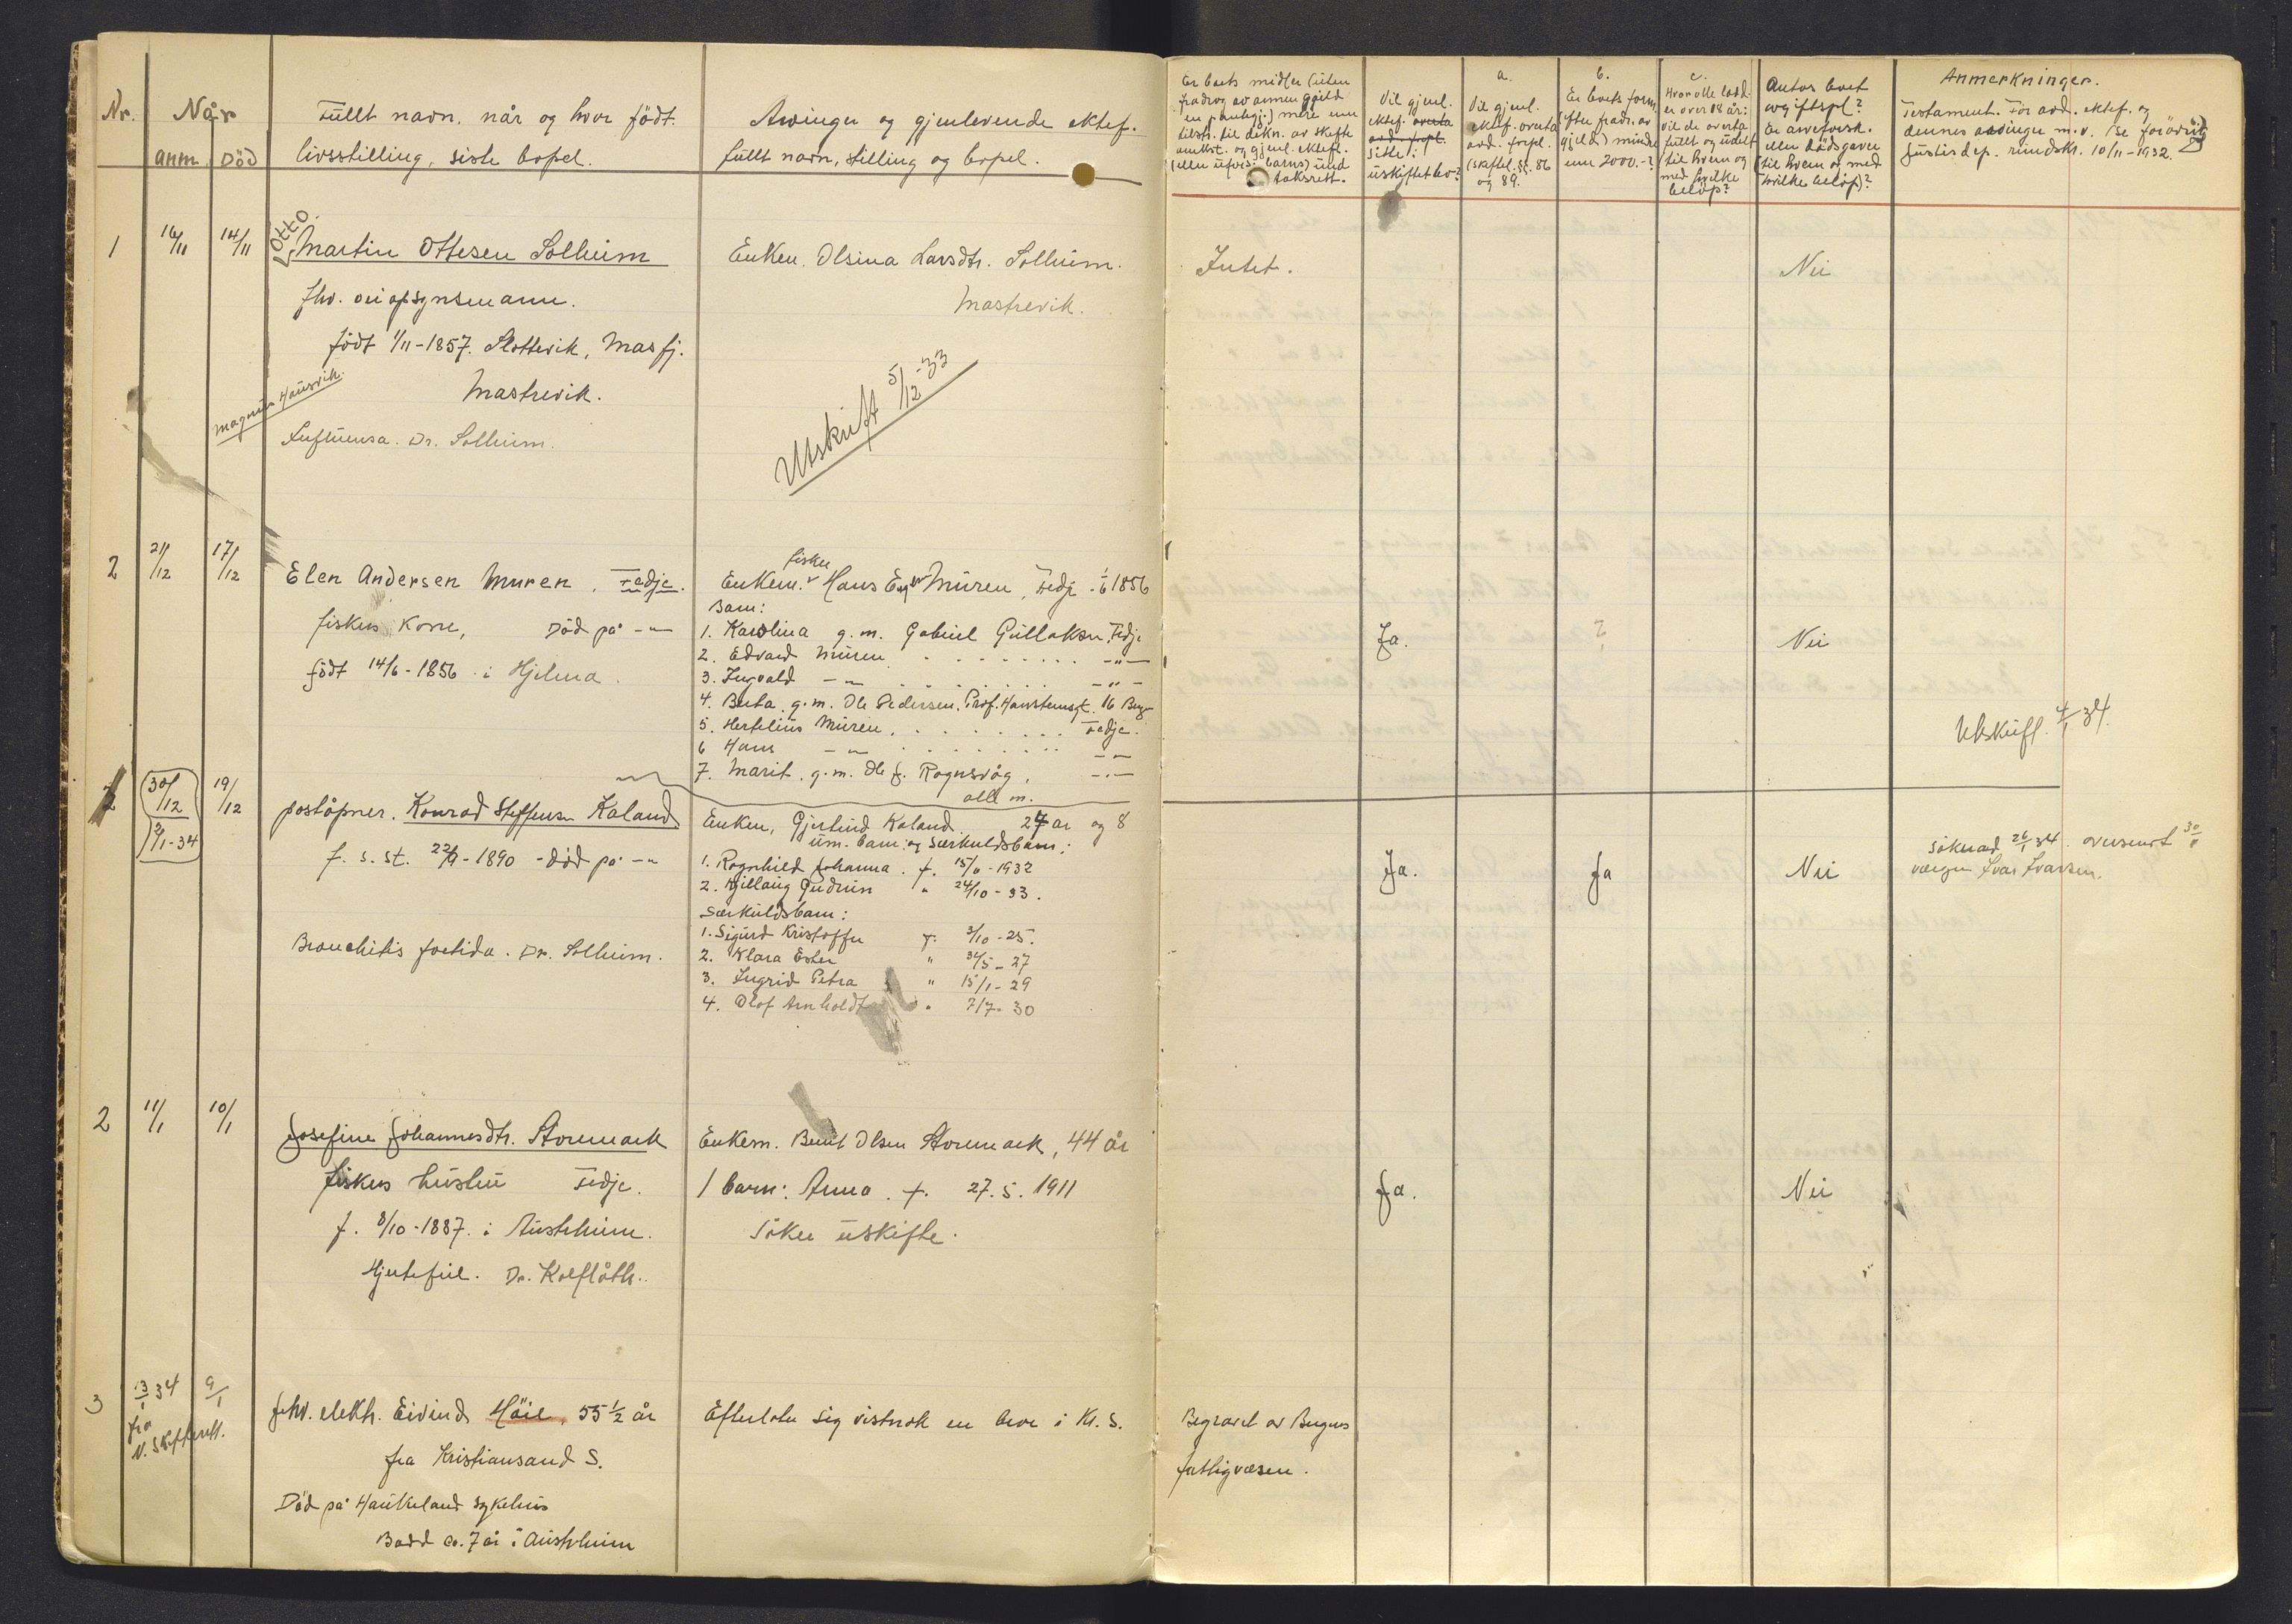 Nr.
Når
anm. Död
Fullt navn, når og hvor født.
livsstilling, siste bopel.
Arvinger og gjenlevende ektef.
fullt navn, stilling og bopel.
Er boets midler (uten
fradrag av annen gjeld
en pantegj.) mere enn
tilstr. til dekn. av skifte
omkst. og gjenl. ektef.
(eller uforsj. barns) und
taksrett.
Vil gjenl.
ektef. overta
avd. forpl.
sitte i
uskiftet bo?
a.
Vil gjenl.
ektef. overta
avd. forpl.
(skiftel. §§. 86
og 89.
b.
Er boets form.
(efter fradr. av
gjeld) mindre
enn 2000.-?
c.
Hvor alle lodd.
er over 18 år:
vil de overta
fullt og udelt
til hvem og
med hvilke
beløp?
Antas boet
avgiftspl.?
Er arveforsk.
eller dødsgaver
(til hvem og med
hvilke beløp)?
Anmerkninger.
Testament. For avd. ektef. og
dennes arvinger m.v. (se forøvrig
Justisdep. rundskr. 10/11-1932.
1 16/11 14/11
Otto
Martin Ottesen Solheim
fhv. oiopsynsmann.
født 1/11-1857. Slottevik, Masfj.
Mastrevik.
Magnus Hausvik.
Influensa. Dr. Solheim.
Enken. Olsina Larsdtr. Solheim.
Mastrevik.
Utskrift 5/12-33
Intet.
Nei
2 21/12 17/12
Elen Andersen Muren. Fedje.
fiskers kone, Död på -"-
født 14/6-1856 i Hjelma.
fisker
Enkem. Hans Muren, Fedje. 1856
Barn:
1. Karolina g.m. Gabriel Gullaksen, Fedje
2. Edvard Muren . . . . . . . -"-
3. Ingvald -"- . . . . . . -"-
4. Berta. g.m. Ole Pedersen. Prof. Hansteensgt. 16 Bergen
5. Hertelius Muren . . . . . . Fedje.
6 Hans -"- . . . . . . -"-
7. Marit. g.m. Ole J. Rognsvåg. -"-
alle m.
Ja.
?
Nei
Utskrift. 4/1 34.
30/12
2/1-34
19/12
poståpner. Konrad Steffensen Kaland
f. s. st. 22/9-1890 - död på -"-
Bronchitis foetida. Dr. Solheim.
Enken, Gjertrud Kaland. 27 år og 8
um. barn og Særkuldsbarn:
1. Ragnhild Johanna. f. 15/6-1932
2. Kjellaug Gudrun " 24/10-33.
Særkuldsbarn:
1. Sigurd Kristoffer f. 3/10-25.
2. Klara Ester " 31/5-27
3. Ingrid Petra " 15/1-29
4. Olof Arnholdt " 7/7-30
Ja.
Ja
Nei
søknad 26/1 34. oversendt 30/1
vergen Ivar Ivarsen.
2 11/1 10/1
Josefine Johannesdtr. Storemark
fiskers hustru Fedje.
f. 8/10-1887. i Austrheim.
Hjertefeil. Dr. Kolflåth.
Enkem. Bernt Olsen Storemark, 44 år
1 barn: Anna. f. 27.5.1911
søker uskifte.
Ja.
Nei
3 13/1 34 9/1
fra
N. Skifterett.
fhv. elektr. Eivind Höie, 55 1/2 år
fra Kristiansand S.
Död på Haukeland sykehus
Bodd ca. 7 år i Austrheim
Efterlater sig vistnok en bror i Kr. S.
Begravet av Bergens
fattigvesen.